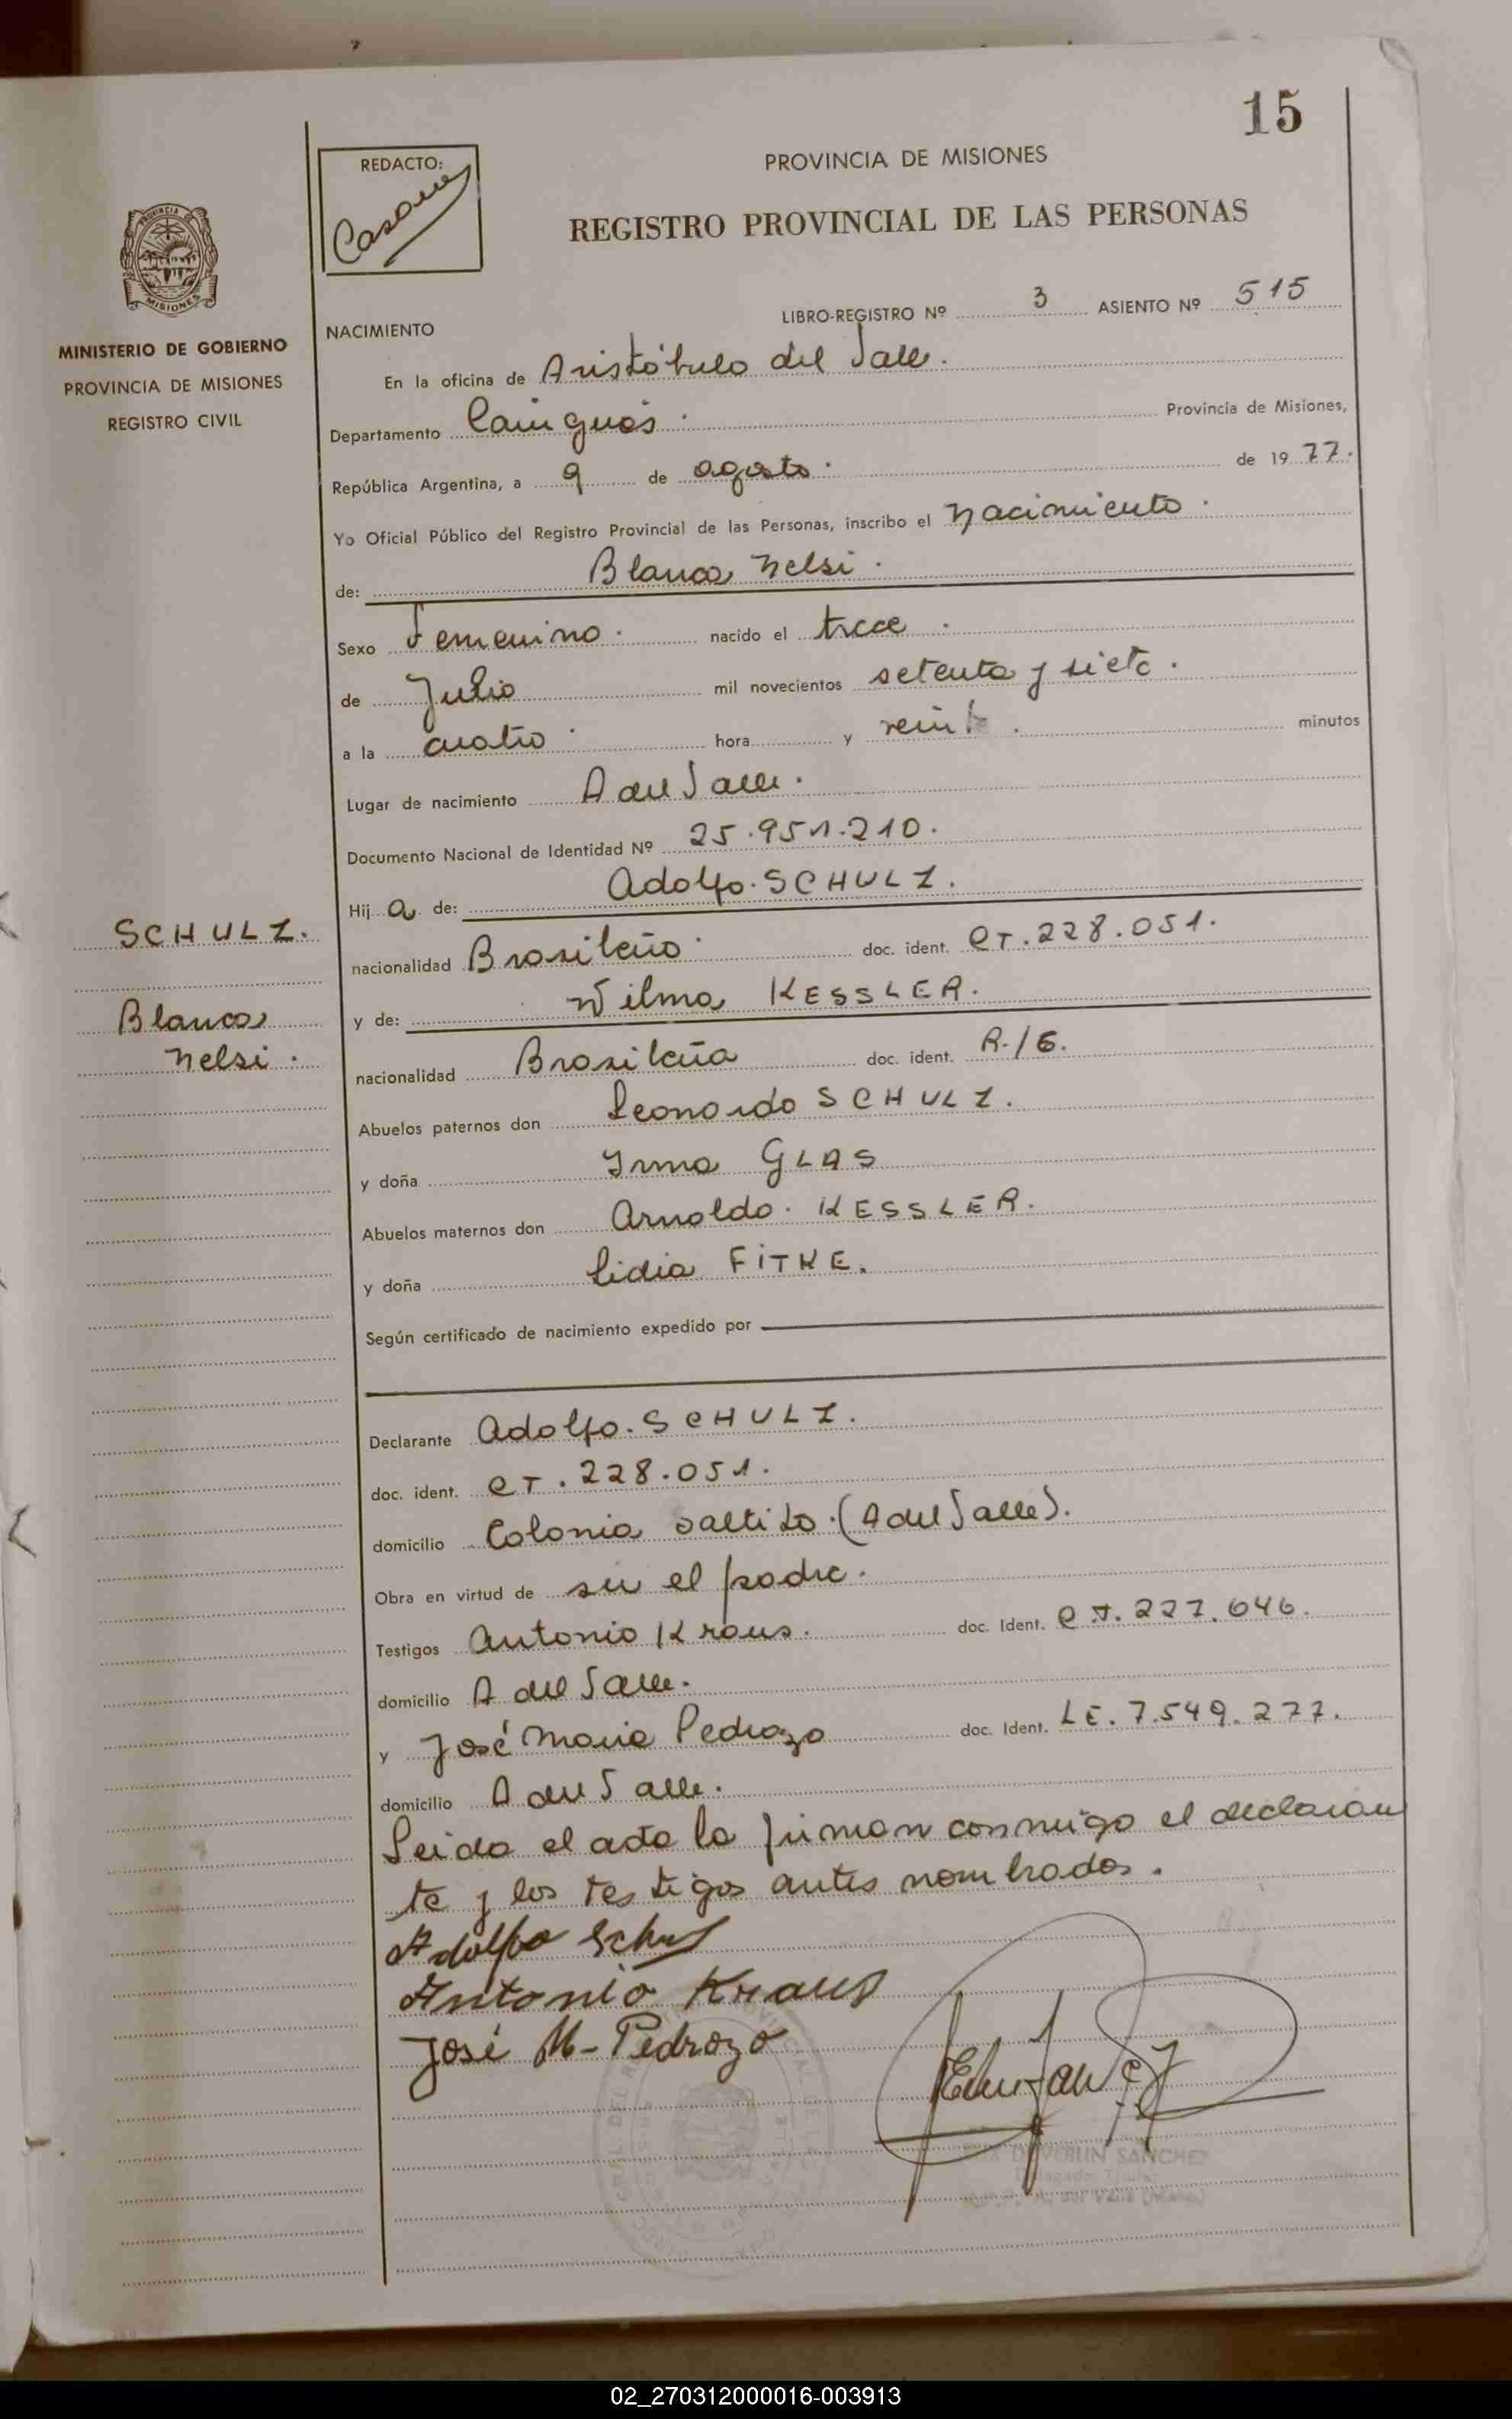 15
REDACTO:
PROVINCIA DE MISIONES
REGISTRO PROVINCIAL DE LAS PERSONAS
PROVINCIA DE
MISIONES
MINISTERIO DE GOBIERNO
PROVINCIA DE MISIONES
REGISTRO CIVIL
NACIMIENTO
LIBRO-REGISTRO Nº 3 ASIENTO Nº 515
En la oficina de Aristóbulo del Valle.
Departamento Cainguás. Provincia de Misiones,
República Argentina, a 9 de agosto. de 1977.
Yo Oficial Público del Registro Provincial de las Personas, inscribo el nacimiento.
de: Blanca Nelsi.
Sexo Femenino. nacido el trece.
de Julio mil novecientos setenta y siete.
a la cuatro. hora y veinte. minutos
Lugar de nacimiento A del Valle.
Documento Nacional de Identidad Nº 25.951.210.
Hija de: Adolfo. SCHULZ.
nacionalidad Brasileño. doc. ident. CI.228.051.
y de: Wilma KESSLER.
nacionalidad Brasileña doc. ident.
Abuelos paternos don Leonardo SCHULZ.
y doña Irma GLAS
Abuelos maternos don Arnoldo. KESSLER.
y doña Lidia FITKE.
Según certificado de nacimiento expedido por
SCHULZ.
Blanca
Nelsi.
Declarante Adolfo. SCHULZ.
doc. ident. CI.228.051.
domicilio Colonia Saltito.(A del Valle).
Obra en virtud de ser el padre.
Testigos Antonio Kraus. doc. Ident. CI.227.646.
domicilio A del Valle.
y José Maria Pedrozo doc. Ident. LE.7.549.277.
domicilio A del Valle.
Leida el acta la firman conmigo el declaran
te y los testigos antes nombrados.
Adolfo Schulz
Antonio Kraus
José M- Pedrozo
SANCHEZ
02_270312000016-003913